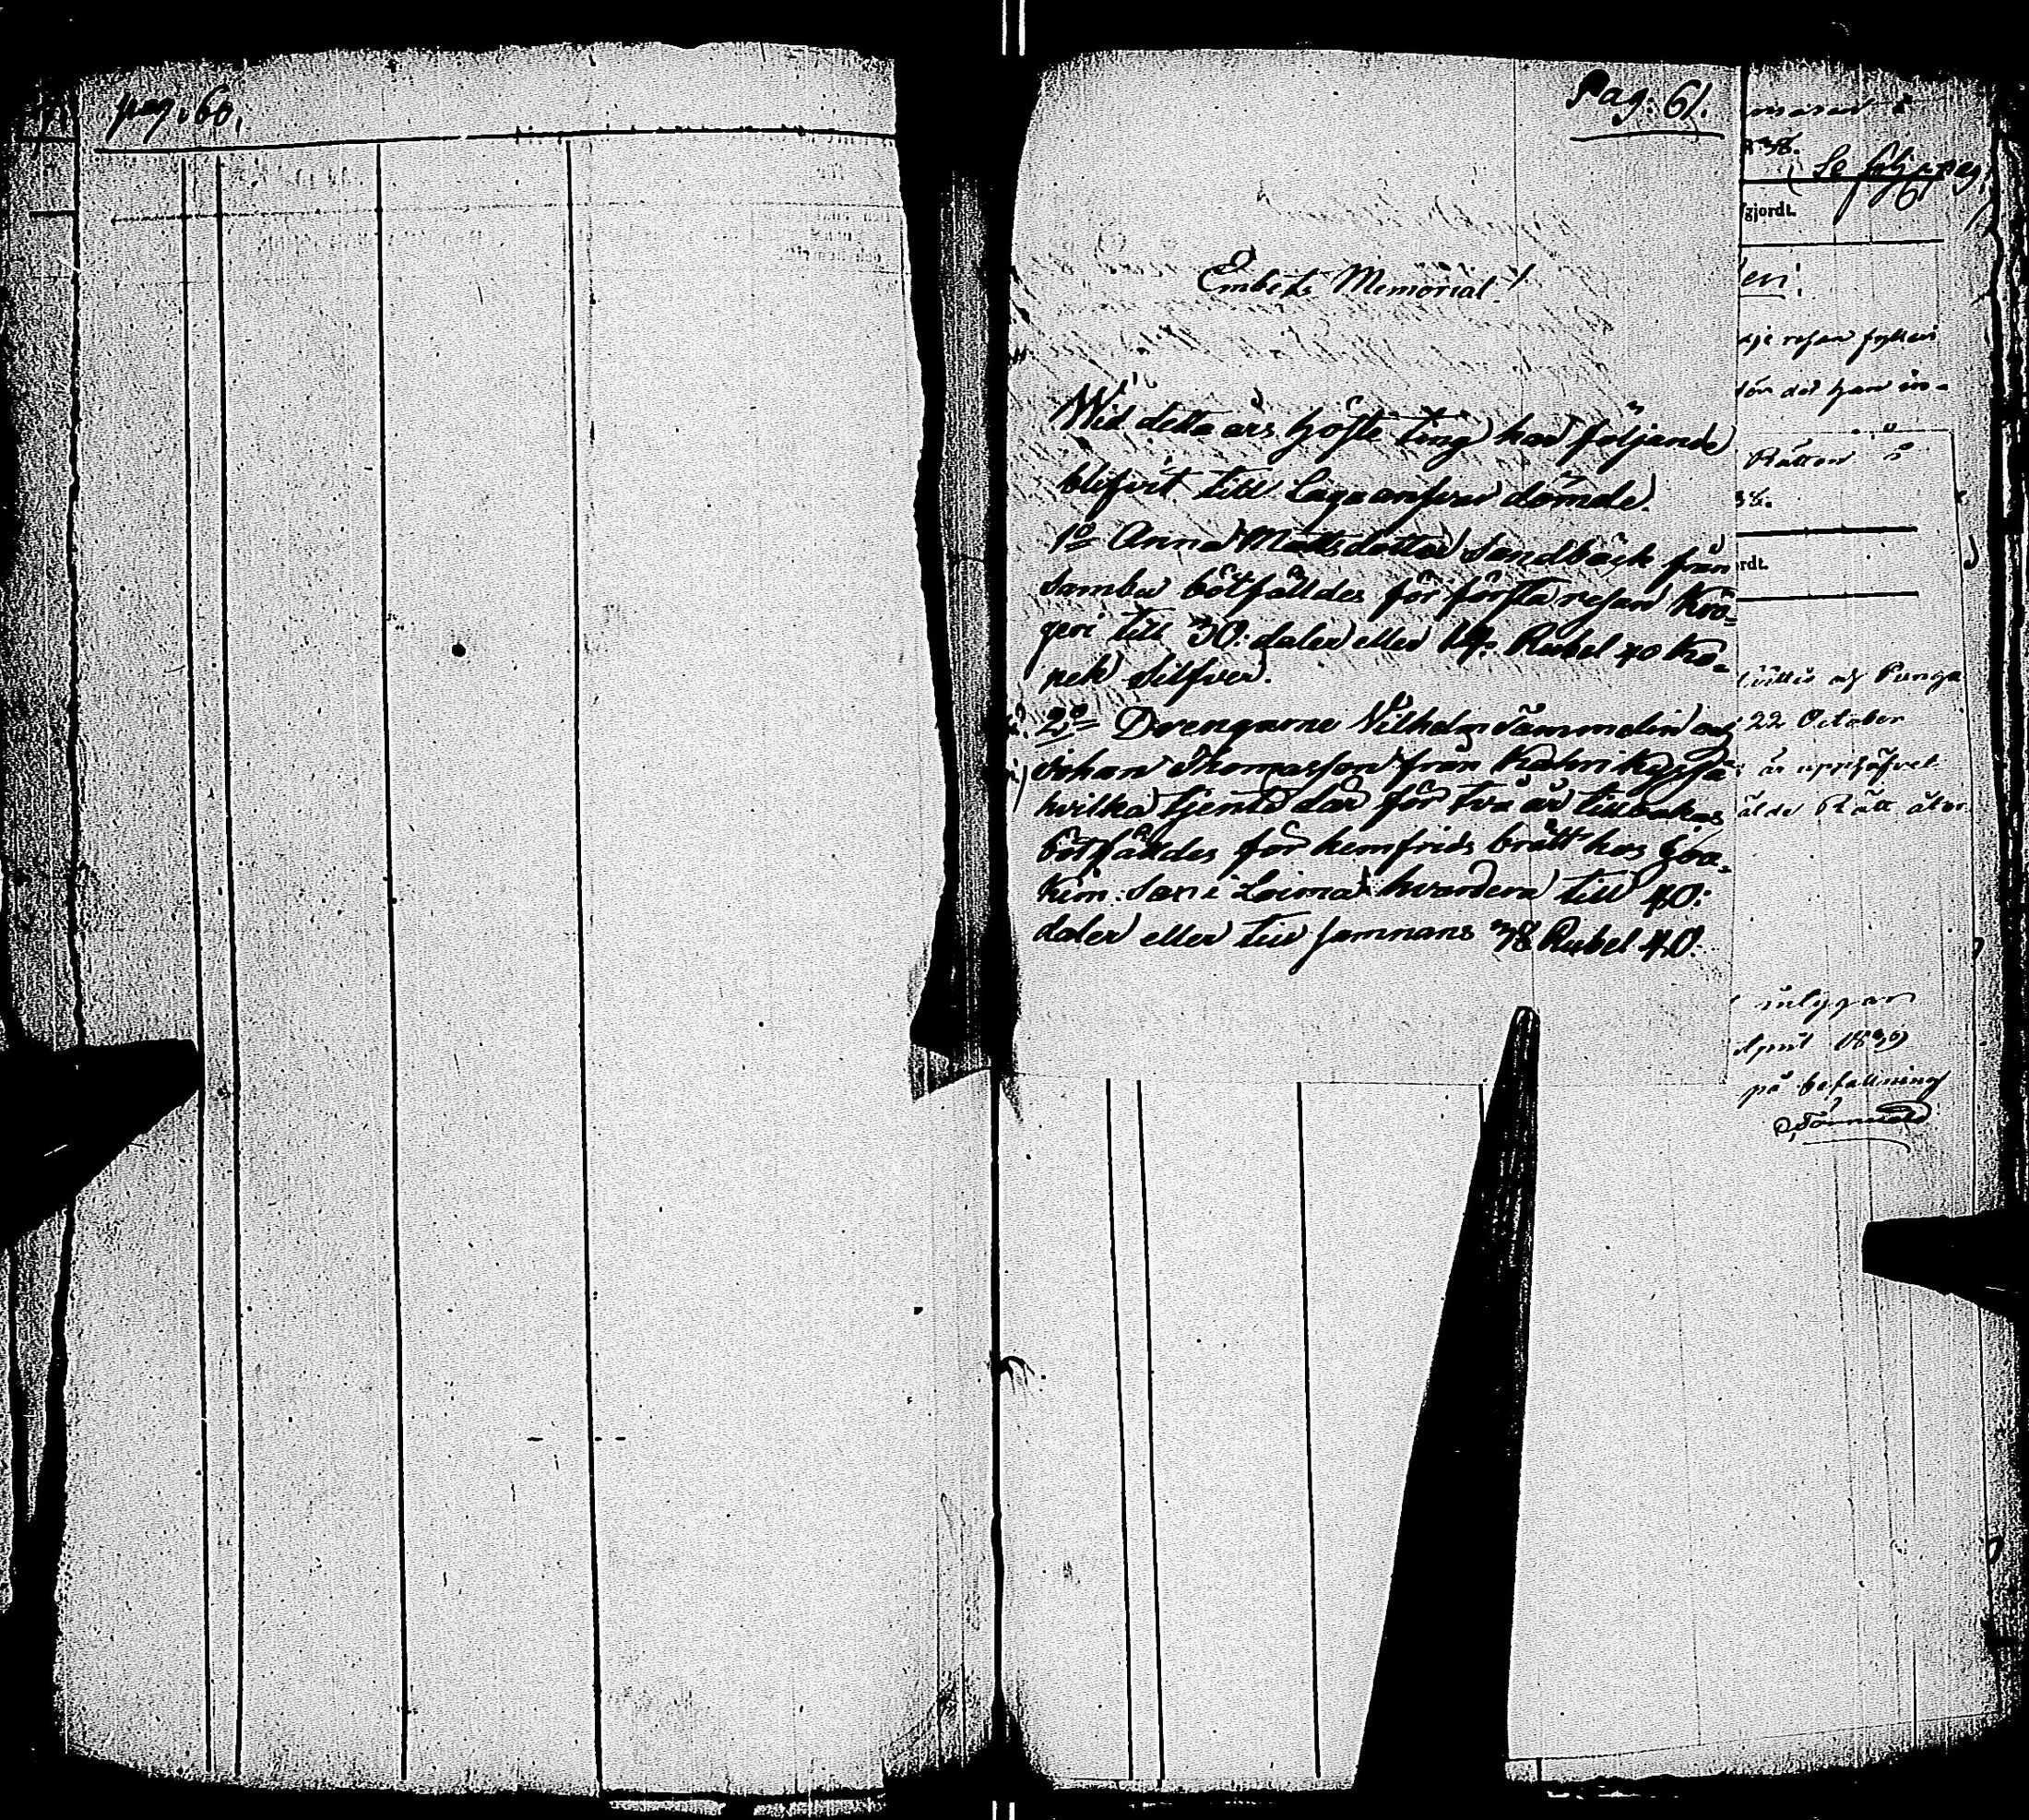 pag. 60.
Pag: 61.
Embets Memorial!
Wid detta års höste ting har följande
blifvit till Lagu ansvar dömde.
1o Anna Mattsdotter Sandbäck från
Samba bötfälldes för första resan Krö=
geri till 30. daler eller 14. Rubel 40 Ko=
pek Silfver.
2o Drengarne Vilhelm Tammelin och
Johan Thomasson från
hvilka tjente där för två år tillbakas
bötfälldes för hemfrids brått hos Joa=
kim: Son i Loima hvardera till 40:
daler eller till sammans 38 Rubel 40:
38.
Se följ. pag.
gjordt.
en:
resan fylleri
det han in=
Rätten
38.
rdt.
af Punga
22 October
är upphäfvet.
Rätt
April 1839
på befallning